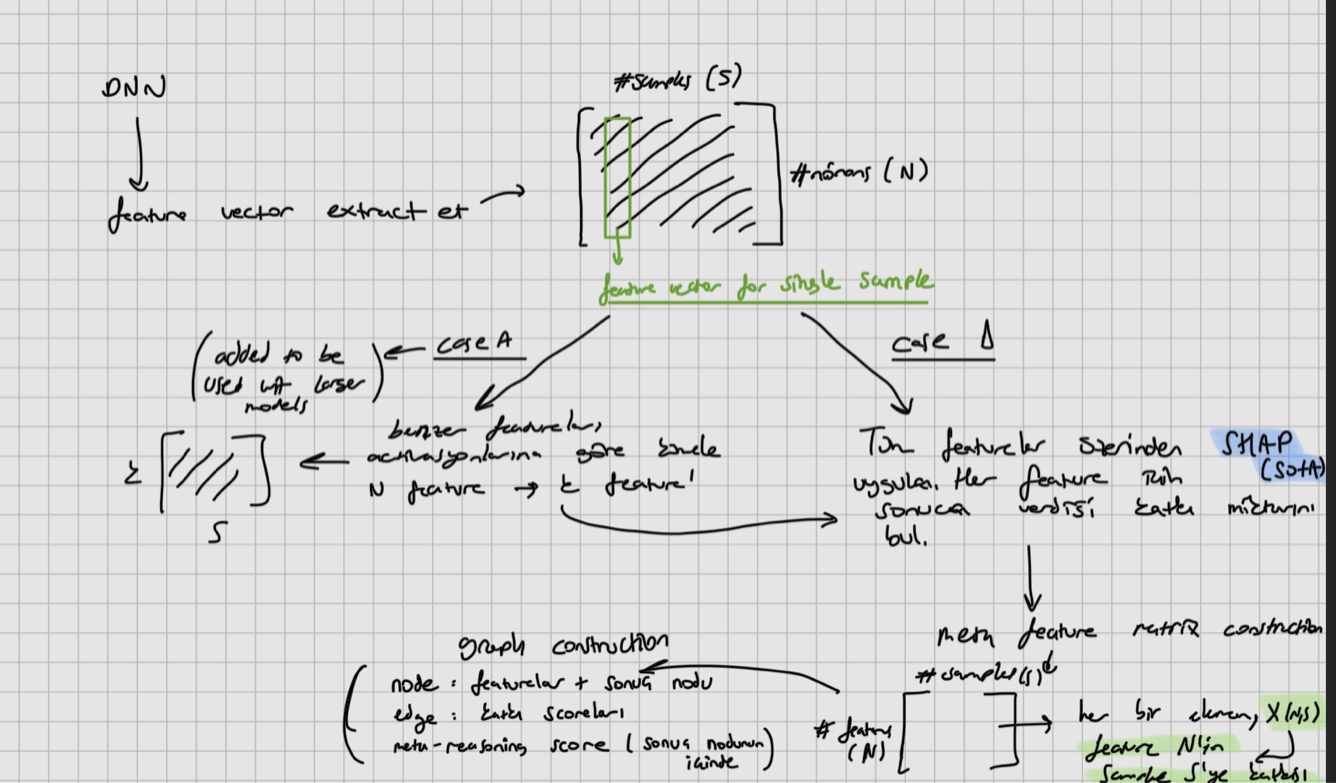 DNN
#samples (S)
#nörons (N)
feature vector extract et
feature vector for single sample
case A
(added to be
used with larger
models)
case Δ
benzer featureları,
activasyonlarına göre kümele
N feature → k feature'
k
S
Tüm featurelar üzerinden SHAP
(SotA)
uygula. Her feature için
sonuca verdiği katkı miktarını
bul.
meta feature matrix construction
#samples(S)
# features
(N)
her bir eleman, X(N,S)
feature N'in
sample S'ye katkısı
graph construction
node : featurelar + sonuç nodu
edge : katkı scoreları
meta-reasoning score (sonuç nodunun
içinde)